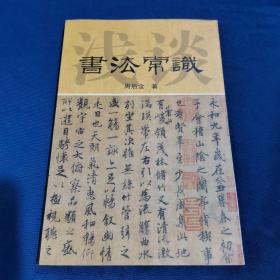 浅谈
書法常識
著
永和九年歲在癸丑暮春之初
于會稽山陰之蘭亭脩稧事
也羣賢畢至少長咸集此地
有峻領茂林脩竹又有清流激
湍暎帶左右引以為流觴曲水
列坐其次雖無絲竹管弦之
盛一觴一詠亦足以暢敘幽情
是日也天朗氣清惠風和暢仰
觀宇宙之大俯察品類之盛
所以遊目騁懷足以極視聽之